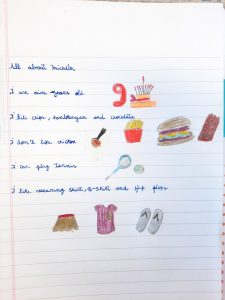 All about Micaela
I am nine years old 9
I like chips, hamburger and chocolate
I don't like chicken
I can play tennis
I like wearing skirt, t-shirt and flip flops